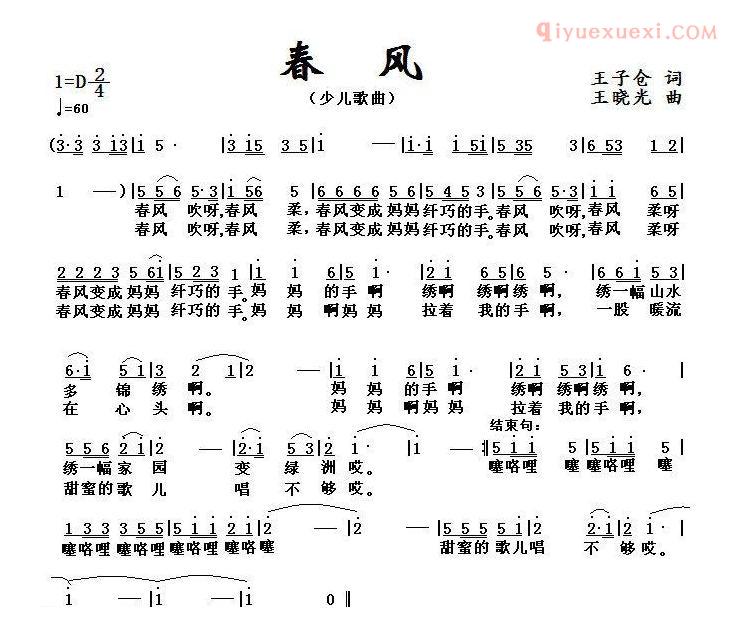 qiyuexuexi.com
春 风
1=D 2/4
王子仓 词
♩=60
（少儿歌曲）
王晓光 曲
(3·3 3 13 | 1 5 · | 3 15 3 5 | 1 — | 1·1 1 51 | 5 35 3· | 6 53 1 2 |
1 — ) | 5 5 6 5·3 | 1 56 5 | 6 6 6 6 5 5 | 5 4 5 3 | 5 5 6 5·3 | 1 1 6 5 |
春风 吹呀,春风 柔,春风变成妈妈纤巧的手。春风 吹呀,春风 柔呀
春风 吹呀,春风 柔,春风变成妈妈纤巧的手。春风 吹呀,春风 柔呀
2 2 2 3 5 61 | 5 2 3 1 | 1 1 6 | 5 1 · | 2 1 6 1 | 5 5 3 5 1 · | 6 6 1 5 3 |
春风变成妈妈 纤巧的 手。妈 妈 的手 啊 绣啊 绣啊绣 啊, 绣一幅山水
春风变成妈妈 纤巧的 手。妈 妈 啊妈 妈 拉着 我的手 啊, 一股 暖流
6·1 5 1 | 3 2 1 | 2 — | 1 1 6 | 5 1 · | 2 1 6 1 | 5 5 3 1 | 6 · |
多 锦绣 啊。 妈 妈 的手 啊 绣啊 绣啊绣 啊,
在 心头 啊。 妈 妈 啊妈妈 拉着 我的手 啊,
结束句:
5 5 6 2 1 | 2 — | 2·1 5 3 | 2 1 · | 1 — :‖ 5 1 1 5 1 1 | 5 1 1 5 |
绣一幅 家 园 变 绿 洲 哎。 噻咯哩 噻咯哩 噻咯哩 噻
甜蜜的 歌 儿 唱 不 够 哎。
1 3 3 3 5 5 | 5 1 1 2 1 | 2 — | 2 — | 5 5 5 5 1 | 2 — | 2·1 5 | 1 — |
噻咯哩 噻咯哩 噻咯哩 噻咯噻 甜蜜的 歌儿唱 不 够 哎。
1 — | 1 — | 1 0 ‖